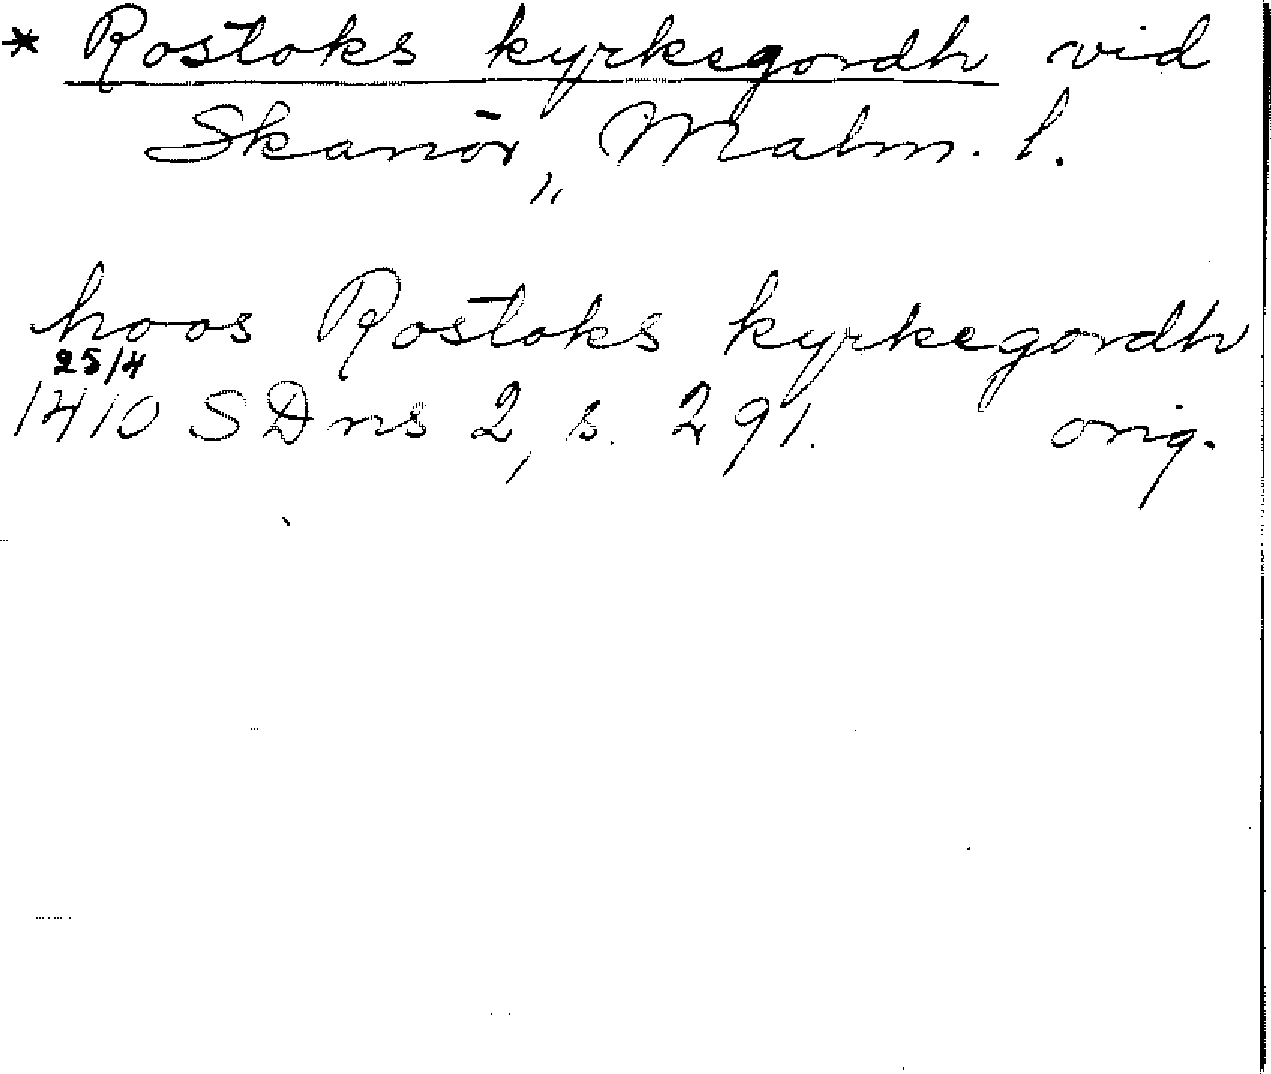 * Rostoks kyrkegordh vid
Skanör, Malm. l.
"
hoos Rostoks kyrkegordh
25/4
1410 SDns 2, s. 291. orig.